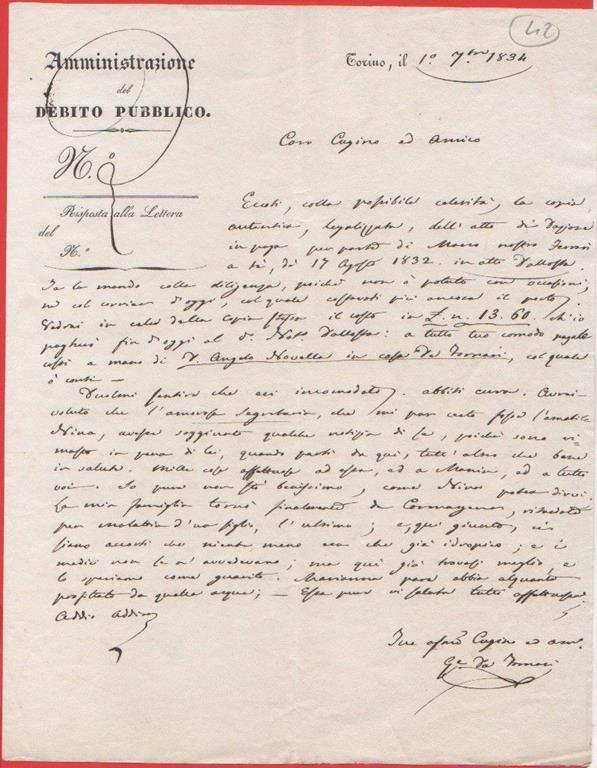 42
Amministrazione
del
DEBITO PUBBLICO.
N.º
Risposta alla Lettera
del
N.º
Torino, il 1º 7bre 1834
Caro Cugino ed Amico
Eccoti, colla possibile celerità, la copia
autentica, legalizzata, dell'atto di
in paga per parte di Marco nostro Ferrari
a te, di 17 Agosto 1832. in atti Dallosta.
Te la mando colla diligenza, poichè non ò potuto con occasioni,
nè col corriere d'oggi col quale costavati più ancora il porto.
Vedrai in calce della Copia stessa il costo in £. n. 13.60. Ch'io
pagherò fin d'oggi al Not. Dallosta: a tutto tuo comodo
costì a mano di D. Angelo Novella in casa De Fornari, col quale
ò conti —
Duolmi sentire che sei incomodato. abbiti cura. Avrei
voluto che l'amorosa segretaria, che mi par certo fosse l'amabile
Nina, avesse soggiunto qualche notizia di Lei, poichè sono
rimasto in pena di lei, quando partì da qui, tutt'altro che bene
in salute. Mille cose affettuose ad essa, ed a Maria, ed a tutti
voi. Io pure non sto benissimo, come Nino potrà dirvi.
La mia famiglia tornò finalmente da, ritardata
per malattia d'un figlio, l'ultimo; e, qui giunto, ci
siamo accorti che niente meno era che già idropico; e i
medici non se n' avvedevano; ma qui già trovasi meglio, e
lo speriamo come guarito. Marianna pare abbia alquanto
profittato da quelle acque; — Essa pur vi saluta tutti
Addio Addio
Tuo Cugino ed am.